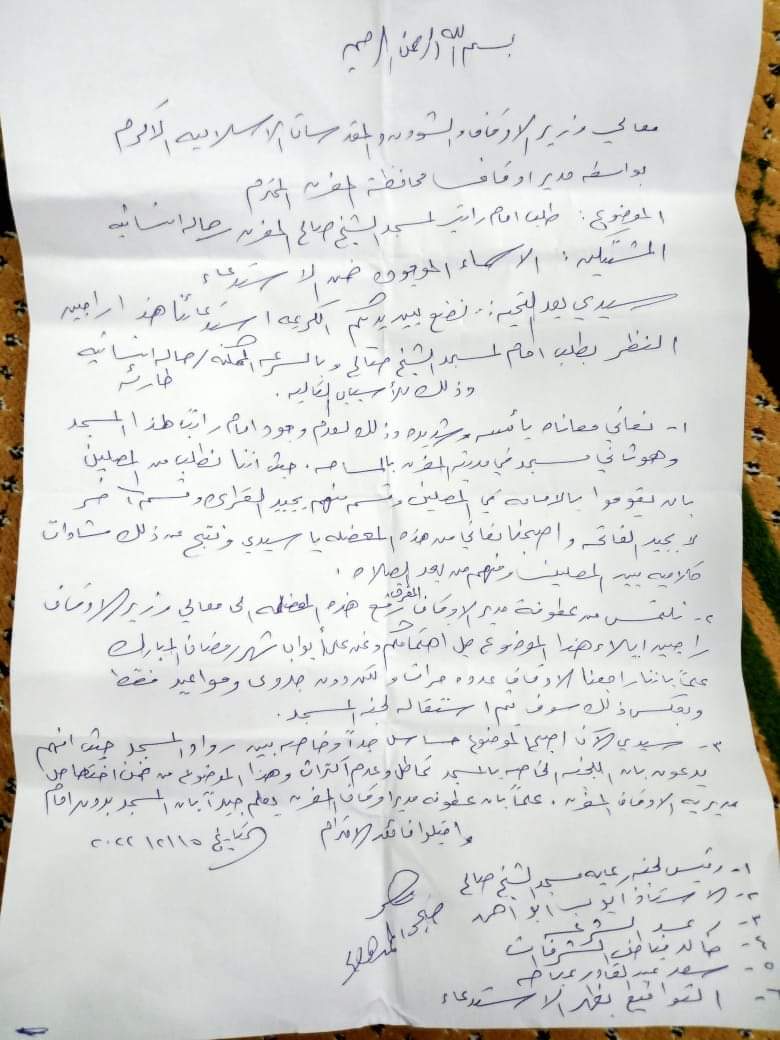 بسم الله الرحمن الرحيم
معالي وزير الاوقاف والشؤون والمقدسات الاسلاميه الاكرم
بواسطه مدير اوقاف محافظة المفرق المحترم
الموضوع: طلب امام راتب لمسجد الشيخ صالح المفرق / حاله انسانيه
المشتكين: الاسماء الموجوده ضمن الاستدعاء
سيدي بعد التحيه:. نضع بين يديكم الكريمه استدعائنا هذا راجين
النظر بطلب امام لمسجد الشيخ صالح وبالسرعه الممكنه / حاله انسانيه
طارئه
وذلك للأسباب التاليه.
١- نعاني معاناه يائسه وشديده وذلك لعدم وجود امام راتب لهذا المسجد
وهو ثاني مسجد في مدينة المفرق بالمساحه. حيث اننا نطلب من المصلين
بان يقوموا بالامامه في المصلين وقسم منهم يجيد القراءه وقسم آخر
لا يجيد الفاتحه واصبحنا نعاني من هذه المعضله يا سيدي ونتج عن ذلك مشادات
كلاميه بين المصلين ومنهم من يعد الصلاه.
٢- نلتمس من عطوفة مدير الاوقاف المفرق رفع هذه المعضله الى معالي وزير الاوقاف
راجين ايلاء هذا الموضوع جل اهتمامكم ونحن على أبواب شهر رمضان المبارك
علماً باننا راجعنا الاوقاف عدة مرات ولكن دون جدوى ومواعيد فقط
وبعكس ذلك سوف يتم استقاله لجنه المسجد.
٣- سيدي الآن اصبح الموضوع حساس جداً وخاصه بين رواد المسجد حيث انهم
يدعون بان اللجنه الخاصه بالمسجد تماطل وعدم اكتراث وهذا الموضوع من ضمن اختصاص
مديريه الاوقاف المفرق. علماً بان عطوفه مدير اوقاف المفرق يعلم جيداً بان المسجد بدون امام
واقبلوا فائق الاحترام
١- رئيس لجنه رعايه مسجد الشيخ صالح
٢- الاستاذ ايوب ابو
٣-
٤- خالد فياض الشرفات
٥- سعد عبدالقادر
٦- التواقيع بظهر الاستدعاء